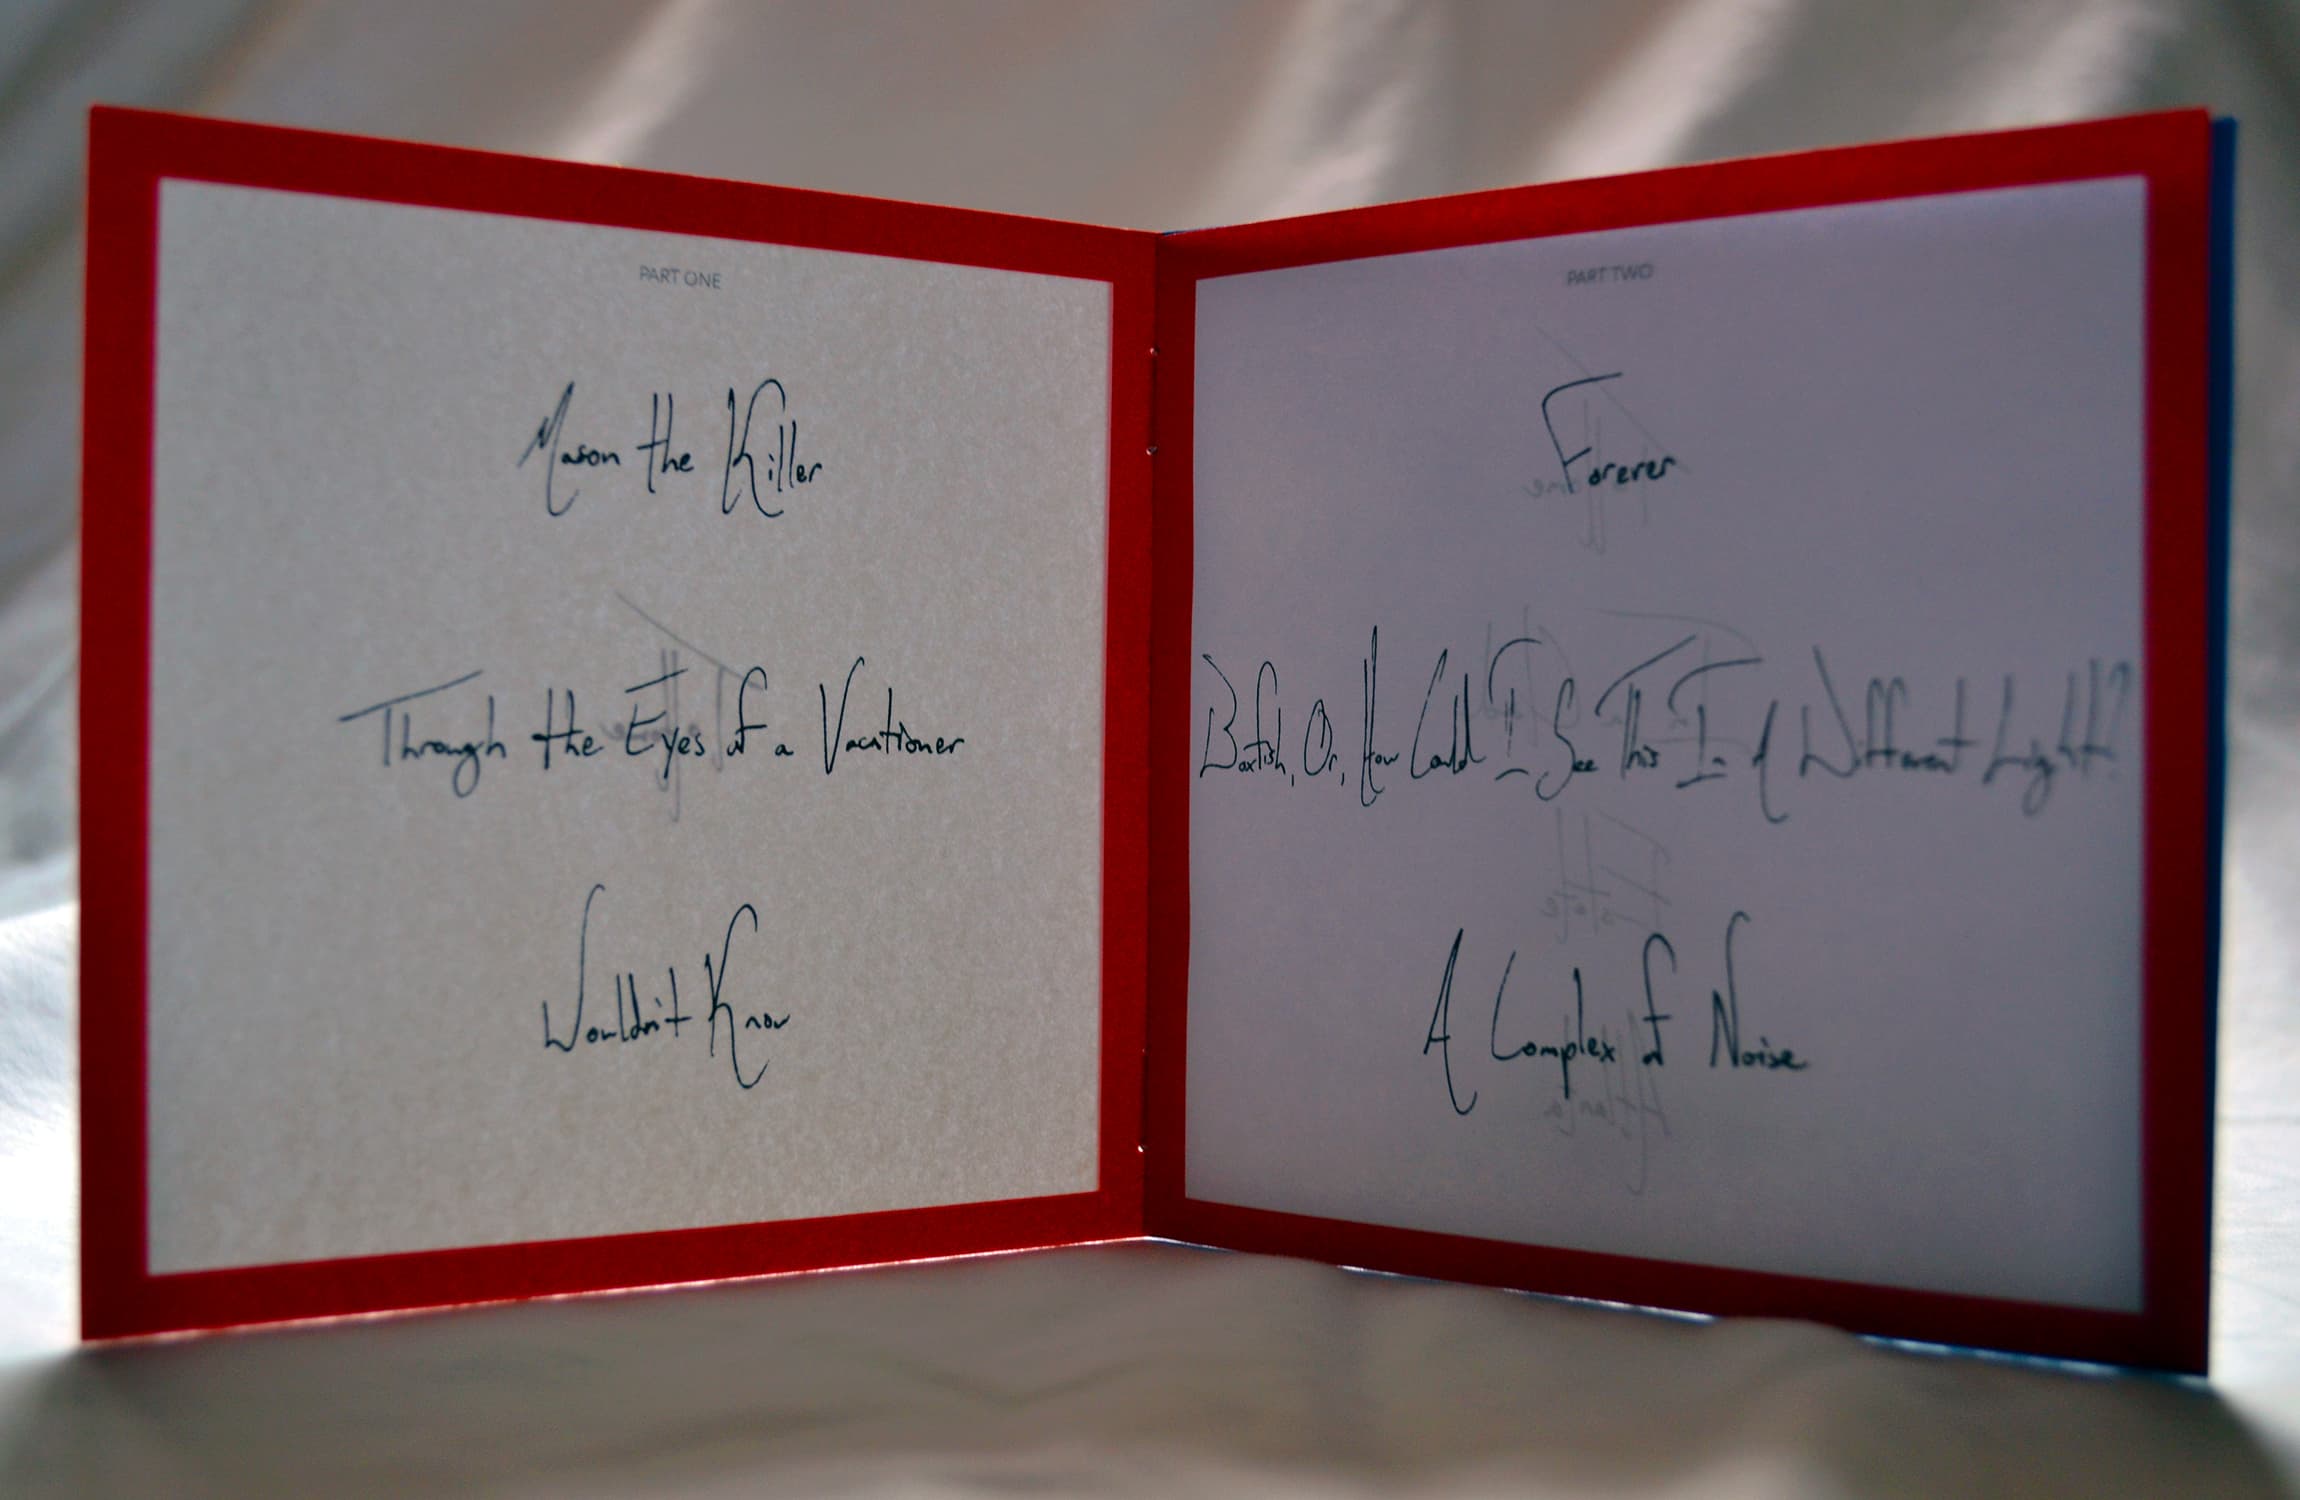 PART ONE
Mason the Killer
Through the Eyes of a Vacationer
Wouldn't Know
PART TWO
Forever
Boxfish, Or, How Could I See This In A Different Light?
A Complex of Noise